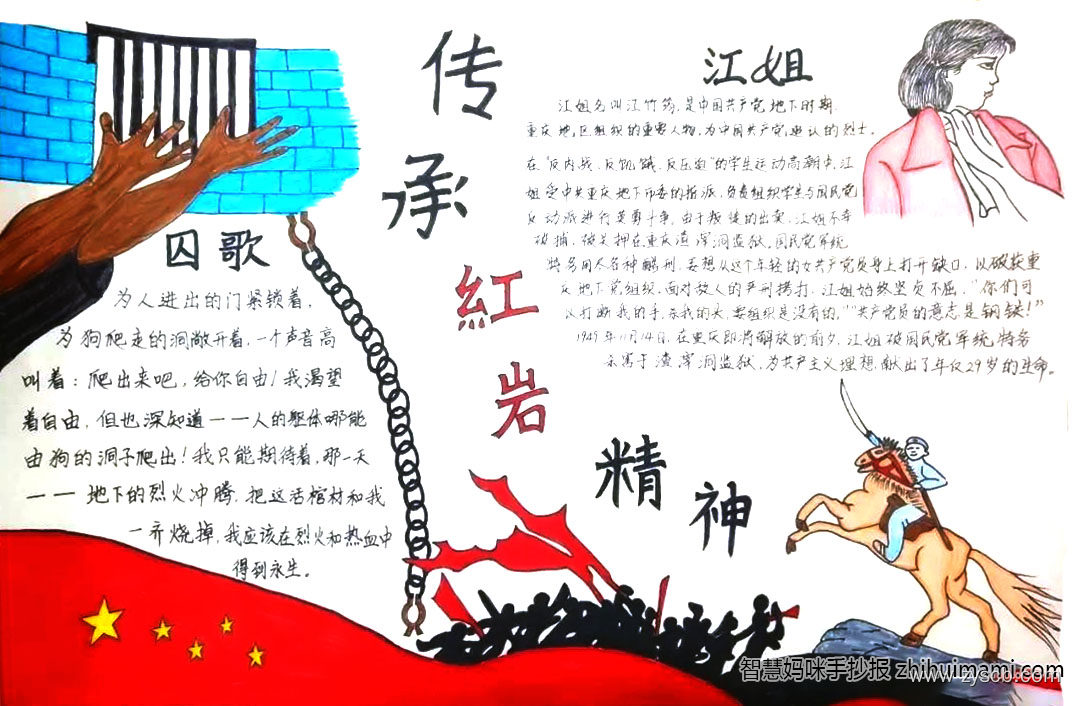 传
承
紅
岩
精
神
囚歌
为人进出的门紧锁着，
为狗爬走的洞敞开着，一个声音高
叫着：爬出来吧，给你自由！我渴望
着自由，但也深知道——人的躯体哪能
由狗的洞子爬出！我只能期待着，那一天
——地下的烈火冲腾，把这活棺材和我
一齐烧掉，我应该在烈火和热血中
得到永生。
江姐
江姐名叫江竹筠，是中国共产党地下时期
重庆地区组织的重要人物，为中国共产党 认的烈士。
在"反内战、反饥饿、反压迫"的学生运动高潮中，江
姐受中共重庆地下市委的指派，负责组织学生与国民党
反动派进行英勇斗争。由于叛徒的出卖，江姐不幸
被捕，被关押在重庆渣滓洞监狱。国民党军统
特务用尽各种酷刑，妄想从这个年轻的女共产党员身上打开缺口，以破获重
庆地下党组织。面对敌人的严刑拷打，江姐始终坚贞不屈，"你们可
以打断我的手，杀我的头，要组织是没有的。""共产党员的意志是钢铁！"
1949年11月14日，在重庆即将解放的前夕，江姐被国民党军统特务
杀害于渣滓洞监狱，为共产主义理想献出了年仅29岁的生命。
智慧妈咪手抄报 zhihuimami.com